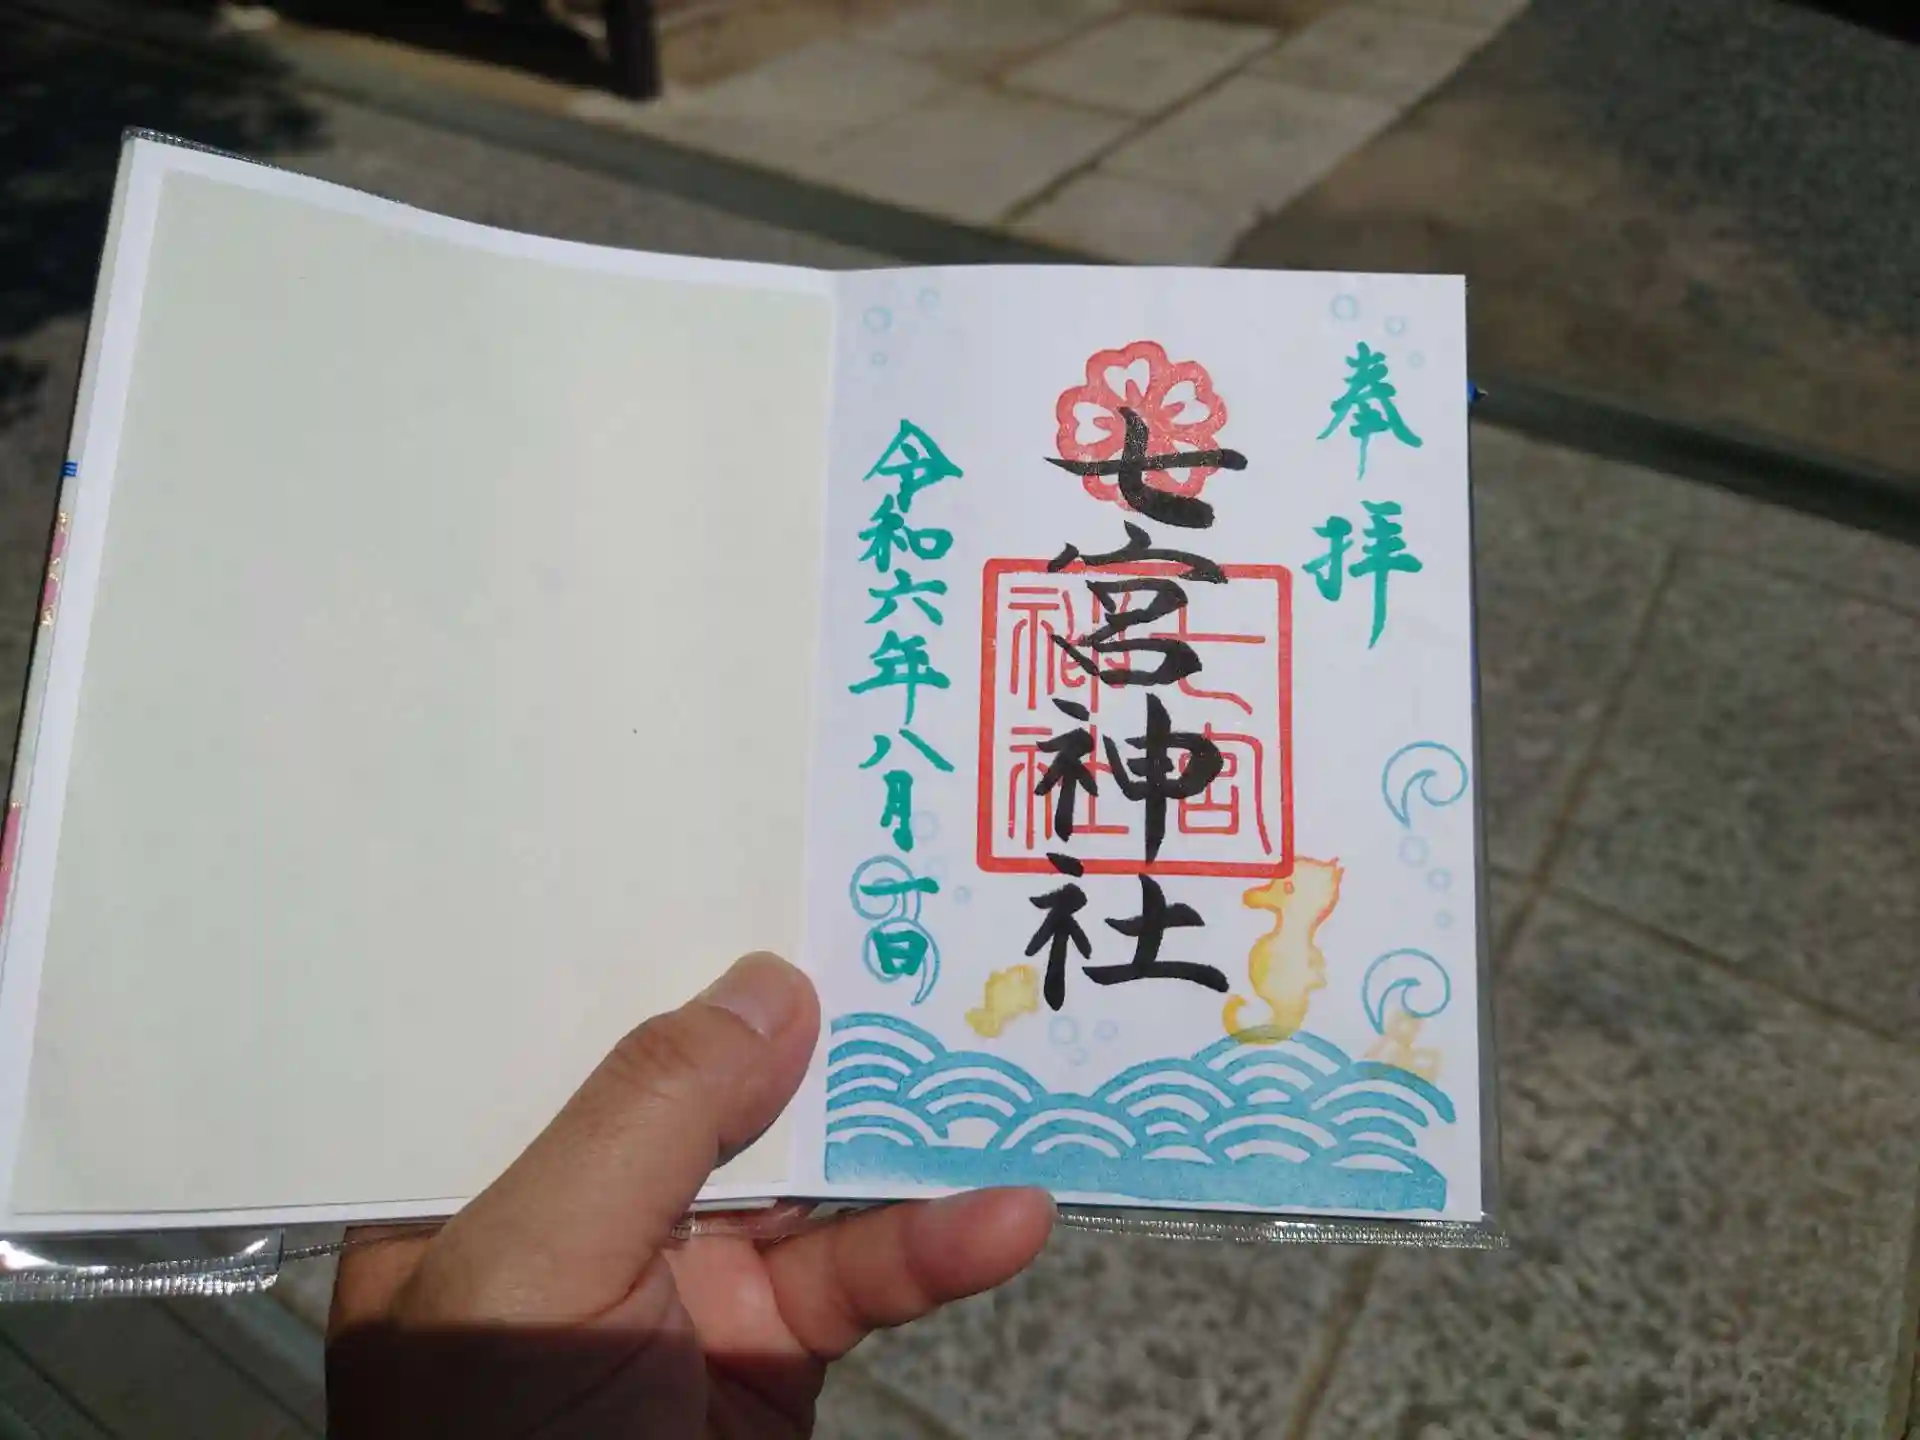 奉拝
七宮神社
七宮
神社
令和六年八月一日